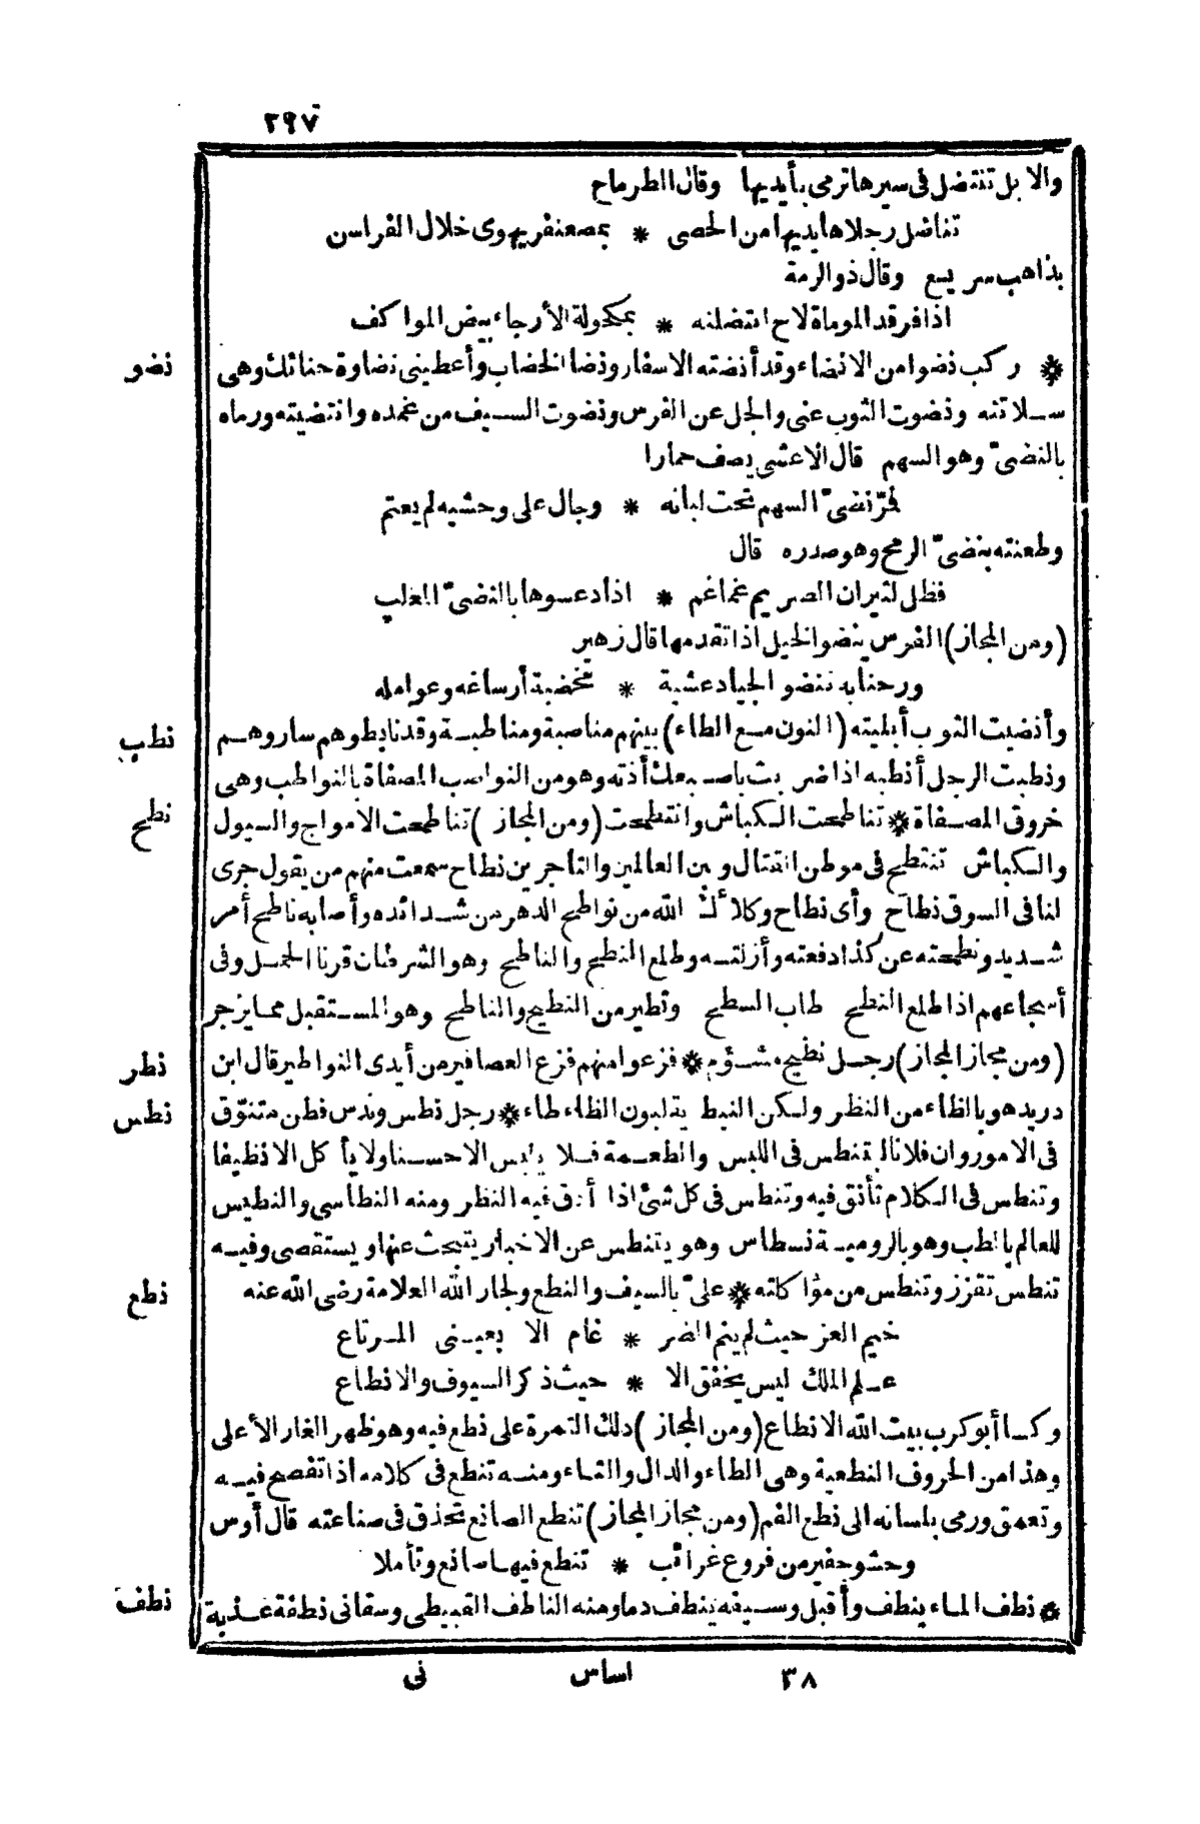 ٢٩٧
والابل تنتضل فى سيرها ترمى بأيديها وقال الطرماح
تناضل رجلاها يديها من الحصى * بمصعنفر يهوى خلال الفراسن
بذاهب سريع وقال ذو الرمة
اذا فرقد الموماة لاح انتضلنه * بمكحولة الأرجاء بيض المواكف
نضو
* ركب نضوا من الانضاء وقد أنضته الاسفار ونضا الخضاب وأعطينى نضاوة حنائك وهى
سلاتته ونضوت الثوب عنى والجل عن الفرس ونضوت السيف من غمده وانتضيته ورماه
بالنضىّ وهو السهم قال الاعشى يصف حمارا
فمرّ نضىّ السهم تحت لبانه * وجال على وحشيه لم يعتم
وطعنته بنضىّ الرمح وهو صدره قال
فظل لثيران الصريم غماغم * اذا دعسوها بالنضىّ المعلب
(ومن المجاز) الفرس ينضو الخيل اذا تقدمها قال زهير
ورحنا به ننضو الجياد عشية * مخضبة أرساغه وعوامله
نطب
وأنضيت الثوب أبليته (النون مع الطاء) بينهم مناصبة ومناطبة وقد نابطوهم ساروهم
ونطبت الرجل أنطبه اذا ضربت باصبعك أذنه وهو من النواصب المصفاة بالنواطب وهى
نطح
خروق المصفاة * تناطحت الكباش وانتطحت (ومن المجاز) تناطحت الامواج والسيول
والكباش تنتطح فى موطن القتال وبين العالمين والتاجرين نطاح سمعت منهم من يقول جرى
لنا فى السوق نطاح وأى نطاح وكلأك الله من نواطح الدهر من شدائده وأصابه ناطح أمر
شديد ونطحته عن كذا دفعته وأزلته وطلع النطح والناطح وهو الشرطان قرنا الحمل وفى
أسجاعهم اذا طلع النطح طاب السطح وتطير من النطيح والناطح وهو المستقبل مما يزجر
نطر
(ومن مجاز المجاز) رجل نطيح مشؤم * فزعوا منهم فزع العصافير من أيدى النواطير قال ابن
نطس
دريد هو بالظاء من النظر ولكن النبط يقلبون الظاء طاء * رجل نطس وندس فطن متنوّق
فى الامور وان فلانا لمتنطس فى اللبس والطعمة فلا يلبس الا حسنا ولا يأكل الا نظيفا
وتنطس فى الكلام تأنق فيه وتنطس فى كل شئ اذا أدق فيه النظر ومنه النطاسى والنطيس
للعالم بالطب وهو بالرومية نسطاس وهو يتنطس عن الاخبار يتبحث عنها ويستقصى وفيه
نطع
تنطس تقزز وتنطس من مؤاكلته * علىّ بالسيف والنطع ولجار الله العلامة رضى الله عنه
خيم العز حيث لم ينم الضر * غام الا بعينى المرتاع
علم الملك ليس يخفق الا * حيث ذكر السيوف والانطاع
وكسا أبو كرب بيت الله الانطاع (ومن المجاز) دلك التمرة على نطع فيه وهو ظهر الغار الأعلى
وهذا من الحروف النطعية وهى الطاء والدال والتاء ومنه تنطع فى كلامه اذا تفصح فيه
وتعمق ورمى بلسانه الى نطع الفم (ومن مجاز المجاز) تنطع الصانع تحذق فى صناعته قال أوس
وحشو جفير من فروع غرائب * تنطع فيها صانع وتأملا
نطف
* نطف الماء ينطف وأقبل وسيفه ينطف دما ومنه الناطف القبيطى وسقانى نطفة عذبة
٣٨ اساس نى